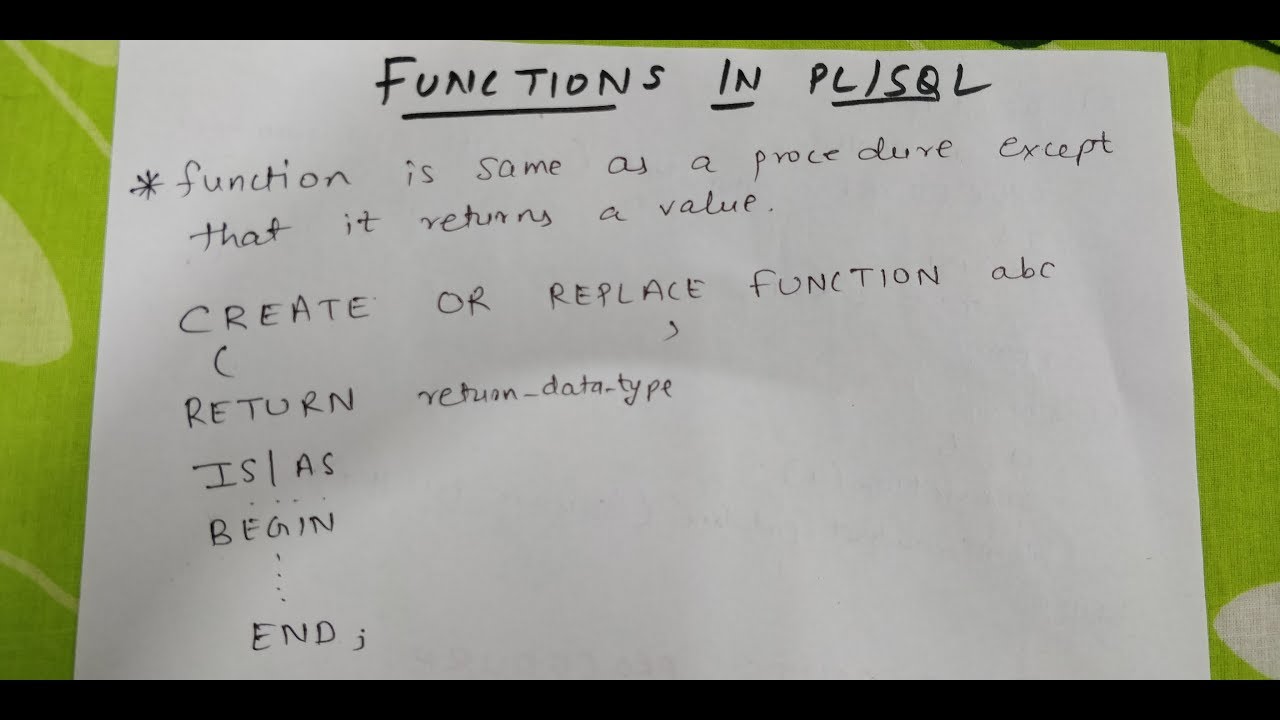 FUNCTIONS IN PL/SQL
* function is same as a procedure except
that it returns a value.
CREATE OR REPLACE FUNCTION abc
( )
RETURN return_data_type
IS/AS
....
BEGIN
....
END;